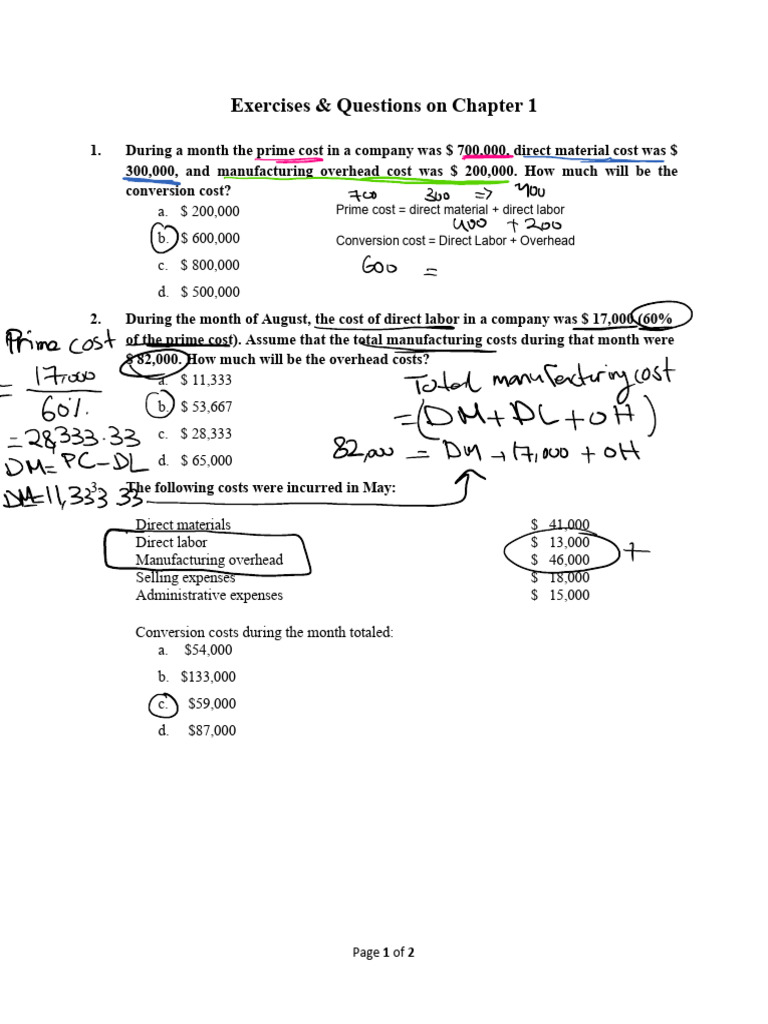 Exercises & Questions on Chapter 1
1. During a month the prime cost in a company was $ 700,000, direct material cost was $
300,000, and manufacturing overhead cost was $ 200,000. How much will be the
conversion cost?
700 300 => 400
a. $ 200,000
Prime cost = direct material + direct labor
400 + 200
b. $ 600,000
Conversion cost = Direct Labor + Overhead
c. $ 800,000
600 =
d. $ 500,000
2. During the month of August, the cost of direct labor in a company was $ 17,000 (60%
of the prime cost). Assume that the total manufacturing costs during that month were
$ 82,000. How much will be the overhead costs?
Prime cost
= 17,000
60%
= 28,333.33
DM = PC - DL
DM = 11,333.33
a. $ 11,333
b. $ 53,667
c. $ 28,333
d. $ 65,000
Total manufacturing cost
= (DM + DL + OH)
82,000 = DM + 17,000 + OH
3. The following costs were incurred in May:
Direct materials $ 41,000
Direct labor $ 13,000
Manufacturing overhead $ 46,000
+
Selling expenses $ 18,000
Administrative expenses $ 15,000
Conversion costs during the month totaled:
a. $54,000
b. $133,000
c. $59,000
d. $87,000
Page 1 of 2